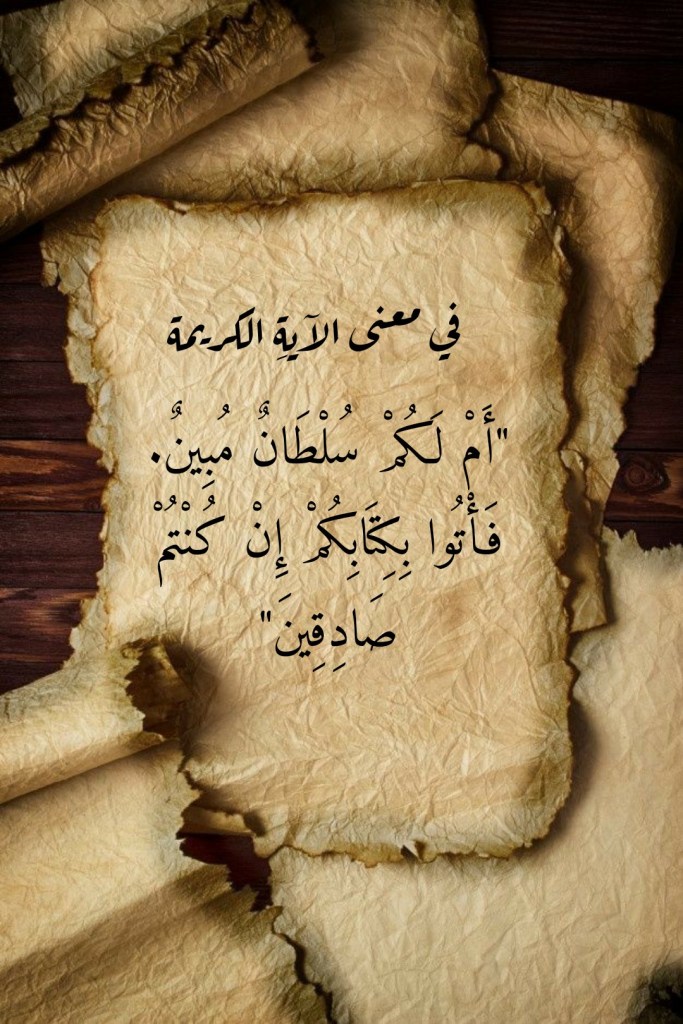 في معنى الآيةِ الكريمة
"أَمْ لَكُمْ سُلْطَانٌ مُبِينٌ.
فَأْتُوا بِكِتَابِكُمْ إِنْ كُنْتُمْ
صَادِقِينَ"